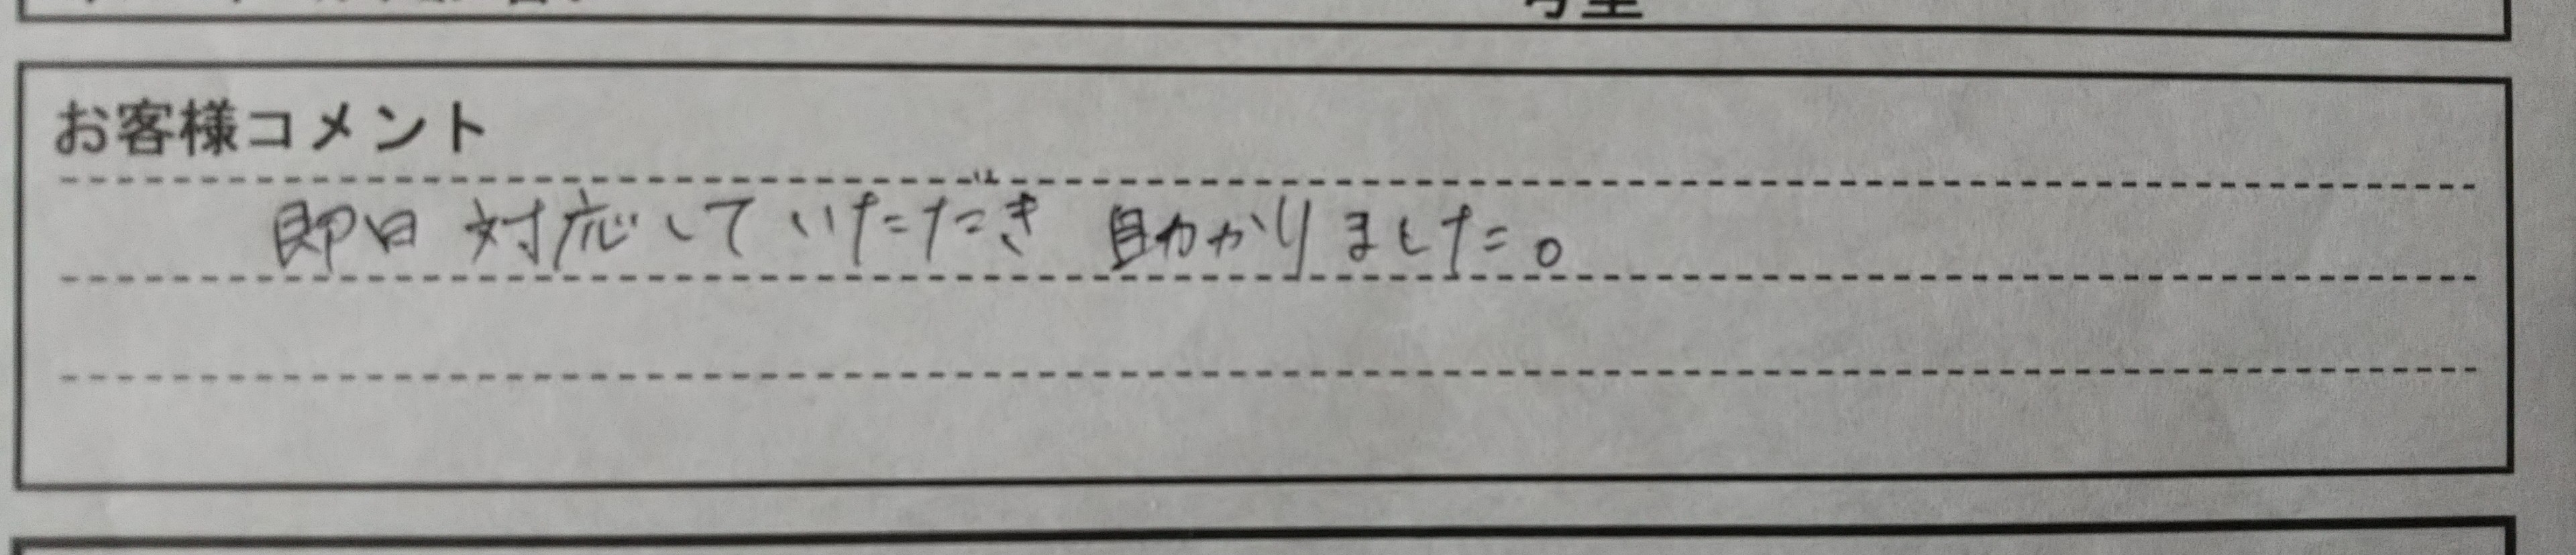 お客様コメント
即日 対応していただき 助かりました。